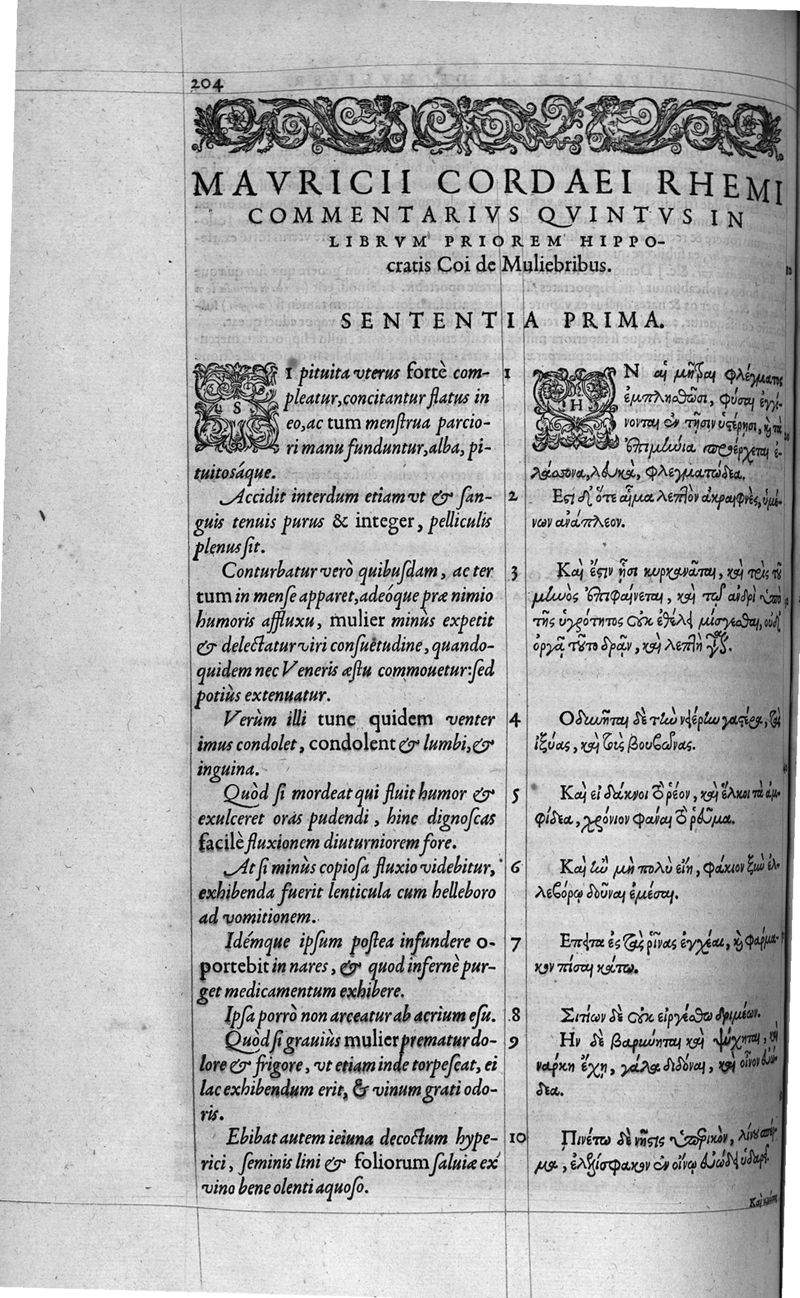 204
MAVRICII CORDAEI RHEMI
COMMENTARIVS QVINTVS IN
LIBRVM PRIOREM HIPPO-
cratis Coi de Muliebribus.
SENTENTIA PRIMA.
SI pituita vterus fortè com-
pleatur, concitantur flatus in
eo, ac tum menstrua parcio-
ri manu funduntur, alba, pi-
tuitosáque.
Accidit interdum etiam vt & san-
guis tenuis purus & integer, pelliculis
plenus sit.
Conturbatur verò quibusdam, ac ter
tum in mense apparet, adeóque præ nimio
humoris affluxu, mulier minus expetit
& delectatur viri consuetudine, quando-
quidem nec Veneris æstu commouetur: sed
potiùs extenuatur.
Verùm illi tunc quidem venter
imus condolet, condolent & lumbi, &
inguina.
Quòd si mordeat qui fluit humor &
exulceret oras pudendi, hinc dignoscas
facilè fluxionem diuturniorem fore.
At si minùs copiosa fluxio videbitur,
exhibenda fuerit lenticula cum helleboro
ad vomitionem.
Idémque ipsum postea infundere o-
portebit in nares, & quod infernè pur-
get medicamentum exhibere.
Ipsa porrò non arceatur ab acrium esu.
Quòd si grauiùs mulier prematur do-
lore & frigore, vt etiam inde torpescat, ei
lac exhibendum erit, & vinum grati odo-
ris.
Ebibat autem ieiuna decoctum hype-
rici, seminis lini & foliorum saluiæ ex
vino bene olenti aquoso.
1 ΗΝ αἱ μῆτραι φλέγματος
ἐμπλησθῶσι, φῦσαι ἐγγί-
νονται ἐν τῇσιν ὑστέρῃσι, καὶ τὰ
ἐπιμήνια προέρχεται ἐ-
λάσσονα, λευκὰ, φλεγματώδεα.
2 Εστι δ' ὅτε αἷμα λεπτὸν ἀκραιφνὲς, ὑμέ-
νων ἀνάπλεον.
3 Καὶ ἔστιν ᾗσι κυρκανᾶται, καὶ τρὶς τοῦ
μηνὸς ἐπιφαίνεται, καὶ τῷ ἀνδρὶ ὑπὸ
τῆς ὑγρότητος οὐκ ἐθέλει μίσγεσθαι, οὐδ'
ὀργᾷ τοῦτο δρᾷν, καὶ λεπτὴ
4 Οδυνῆται δὲ τὴν νειέρην γαστέρα, καὶ
ἰξύας, καὶ τοὺς βουβῶνας.
5 Καὶ εἰ δάκνοι τὸ ῥέον, καὶ ἕλκοι τὰ ἀμ-
φίδεα, χρόνιον φάναι τὸ ῥεῦμα.
6 Καὶ ἢν μὴ πολὺ εἴη, φάκιον ξὺν ἑλ-
λεβόρῳ δοῦναι ἐμέσαι.
7 Επειτα ἐς τὰς ῥῖνας ἐγχέαι, καὶ φάρμα-
κον πῖσαι κάτω.
8 Σιτίων δὲ οὐκ εἰργέσθω δριμέων.
9 Ην δὲ βαρύνηται καὶ ψύχηται, καὶ
νάρκη ἔχῃ, γάλα διδόναι, καὶ οἶνον εὐώ-
δεα.
10 Πινέτω δὲ νῆστις ὑπερικὸν, λίνου σπέρ-
μα, ἐλελίσφακον ἐν οἴνῳ εὐώδει ὑδαρεῖ.